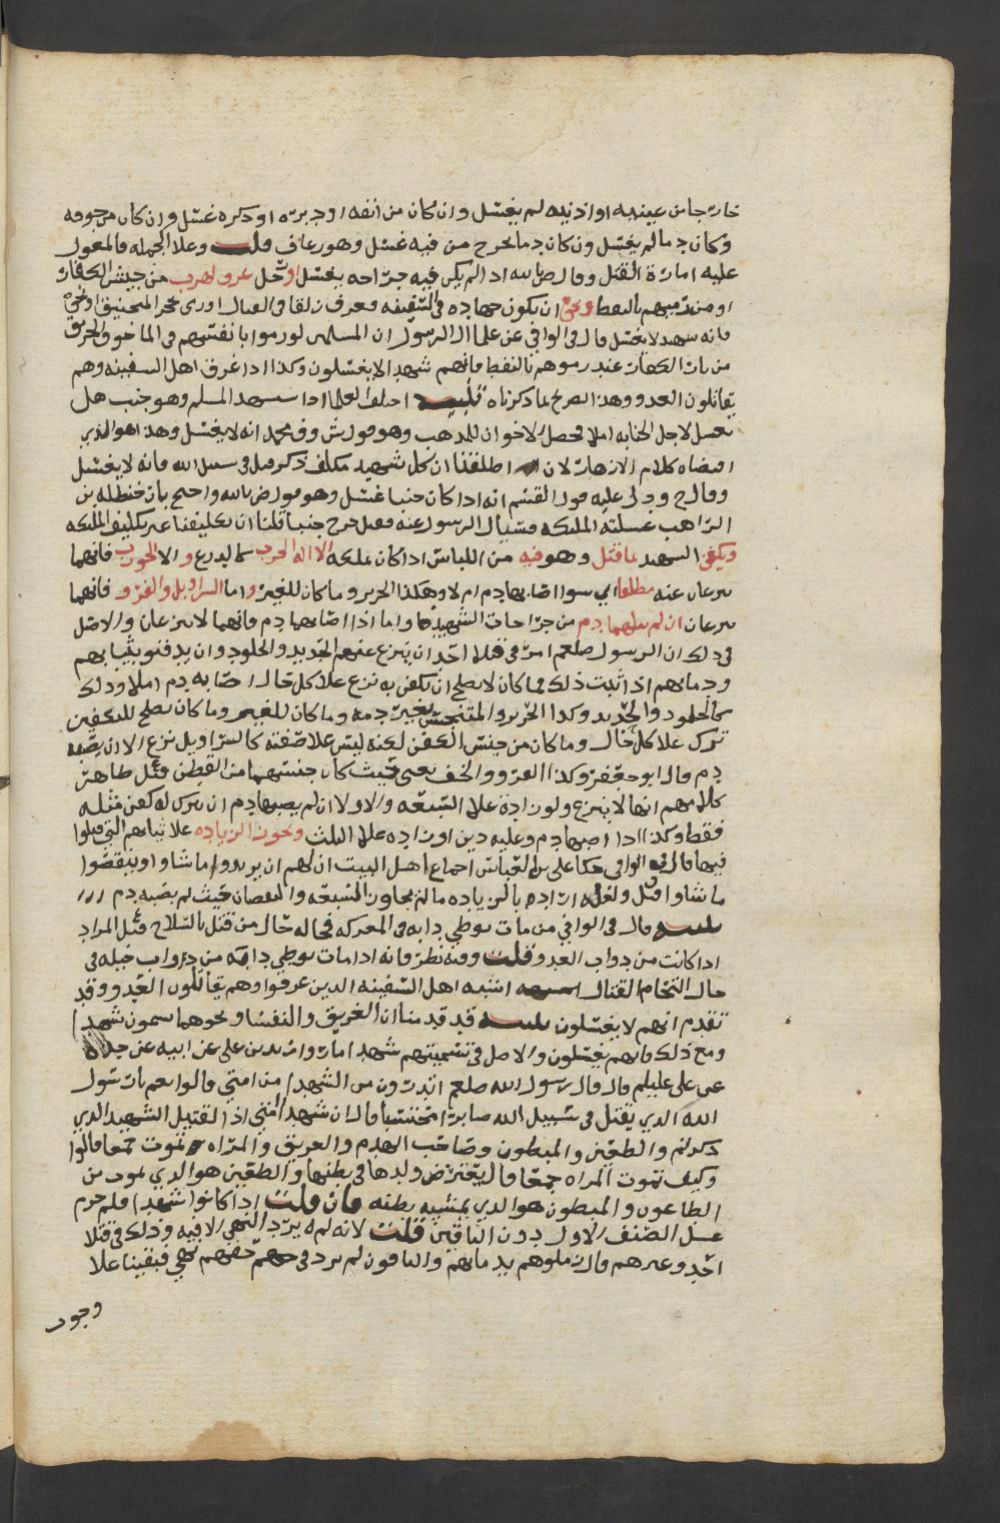 خارجا من عينيه او اذنيه لم يغسل وان كان من انفه او دبره او ذكره غسل وان كان من جوفه
وكان دما لم يغسل وان كان دما خرج من فيه غسل وهو رعاف قلت وعلا الجمله فالمعول
عليه امارة القتل وقال ص بالله اذا لم يكن فيه جراحه يغسل او حل عرو لهرب من جيش الكفار
او من رميهم بالنفط ونحو ان يكون جهاده في السفينه فغرف زلقا في القتال او رمى بحجر المنجنيق او نحوه
فانه شهيد لا يغسل قال في الوافي عن علما ال الرسول ان المسلمين لو رموا بانفسهم في الما خوف الحريق
من نار الكفار عند رموهم بالنفط فانهم شهدا لا يغسلون وكذا اذا غرق اهل السفينه وهم
يقاتلون العدو وهذا الصريح لما ذكرناه تنبيه اختلف العلما اذا استشهد المسلم وهو جنب هل
يغسل لاجل الجنابه ام لا فحصل الاخوان للمذهب وهو قول ش وف ومحمد انه لا يغسل وهذا هو الذي
اقتضاه كلام الازهار لان اطلقنا ان كل شهيد مكلف ذكر قتل في سبيل الله فانه لا يغسل
وقال ح ودل عليه قول القسم انه اذا كان جنبا غسل وهو قول ص بالله واحتج بان حنظله بن
الراهب غسلته الملئكه فسال الرسول عنه فقيل خرج جنبا قلنا ان تكليفنا غير تكليف الملئكه
ويكفن الشهيد بما قتل وهو فيه من اللباس اذا كان يملكه الا اله الحرب كالدرع و الا الجورب فانهما
ينزعان عنه مطلقا اي سوا اصابهما دم ام لا وهكذا الحرير وما كان للغير و اما السراويل والفرو فانهما
ينزعان ان لم ينلهما دم من جراحات الشهيد واما اذا اصابهما دم فانهما لا ينزعان والاصل
في ذلك ان الرسول صلعم امر في قتلا احد ان ينزع عنهم الحديد والجلود وان يدفنو بثيابهم
ودمائهم اذا ثبت ذلك فما كان لا يصلح ان يكفن به نزع علا كل حال اصابه دم ام لا وذلك
كالجلود والحديد وكذا الحرير والمتنجس بغير دمه وما كان للغير وما كان يصلح للتكفين
ترك علا كل حال وما كان من جنس الكفن لكنه ليس علا صفته كالسراويل نزع الا ان يصبه
دم قال ابو جعفر وكذا الفرو والخف يعني حيث كان جنسهما من القطن وقيل ظاهر
كلامهم انها لا ينزع ولو زادة علا السبعه والاولا ان لم يصبها دم ان يترك له كفن مثله
فقط وكذا اذا اصبها دم وعليه دين او زاده علا الثلث وتجوز الزياده علا ثيابهم التي قتلوا
فيها قال في الوافي حكا علي بن العباس اجماع اهل البيت ان لهم ان يزيدوا ما شاوا وينقصوا
ما شاوا وقيل ولعله اراد بالزياده ما لم يجاوز السبعه والنقصان حيث لم يصبه دم
تنبيه قال في الوافي من مات بوطي دابه في المعركه فحاله حال من قتل بالسلاح وقيل المراد
اذا كانت من دواب العدو قلت وفيه نظر فانه اذا مات بوطي دابه من دواب خيله في
حال التحام القتال اشبه اهل السفينه الذين غرقوا وهم يقاتلون العدو وقد
تقدم انهم لا يغسلون تنبيه قد قدمنا ان الغريق والنفسا ونحوهما يسمون شهدا
ومع ذلك فانهم يغسلون والاصل في تسميتهم شهدا ما رواه زيد بن علي عن ابيه عن جده
عن علي عليلم قال قال رسول الله صلعم اتدرون من الشهدا من امتي قالوا نعم يا رسول
الله الذي يقتل في سبيل الله صابرا محتسبا قال ان شهدا امتي اذا لقليل الشهيد الذي
ذكرتم والطعين والمبطون وصاحب الهدم والغريق والمراه تموت جمعا قالوا
وكيف تموت المراه جمعا قال يعترض ولدها في بطنها والطعين هو الذي يموت من
الطاعون والمبطون هو الذي يمشيه بطنه فان قلت اذا كانوا شهدا فلم حرم
غسل الصنف الاول دون الباقين قلت لانه لم يرد النهي الا فيه وذلك في قتلا
احد وغيرهم قال زملوهم بدمائهم والباقون لم يرد في حقهم نهي فبقينا علا
وجوب